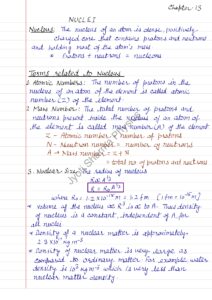 Chapter - 13
NUCLEI
Nucleus: The nucleus of an atom is dense, positively-
charged core that contains protons and neutrons
and holding most of the atom's mass
* protons + neutrons = nucleons
Terms related to Nucleus
1. Atomic number: The number of protons in the
nucleus of an atom of the element is called atomic
number (Z) of the element.
2. Mass Number: The total number of protons and
neutrons present inside the nucleus of an atom of
the element is called mass number (A) of the element
Z - Atomic number = number of protons
N - Neutron number = number of neutrons
A - Mass number = Z + N
= total no of protons and neutrons
3. Nuclear Size: The radius of nucleus
R ∝ A^1/3
R = R₀ A^1/3
where R₀ = 1.2 × 10⁻¹⁵ m = 1.2 fm [1 fm = 10⁻¹⁵ m]
* volume of the nucleus as R³ is ∝ to A. Thus density
of nucleus is a constant, independent of A, for
all nuclei
* Density of nuclear matter is approximately
2.3 × 10¹⁷ kg m⁻³
* Density of nuclear matter is very large as
compared to ordinary matter. For example water
density is 10³ kg m⁻³ which is very less than
nuclear matter density